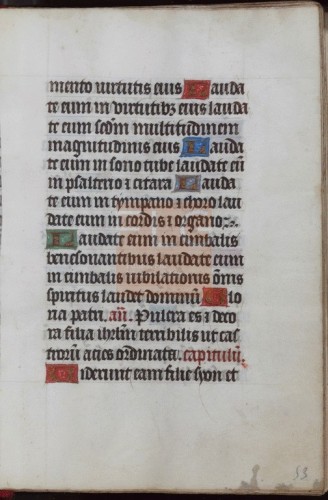 mento virtutis eius Lauda
te eum in virtutibʒ eius lauda
te eum secdm multitudinem
magnitudinis eius Lauda
te eum in sono tube laudate eū
in psalterio ⁊ citara Lauda
te eum in tympano ⁊ choro lau
date eum in cordis ⁊ organo
Laudate eum in cimbalis
benesonantibus laudate eum
in cimbalis iubilationis om̄is
spiritus laudet dominū Glo
ria patri. añ. Pulcra es ⁊ deco
ra filia ihrlm terribilis ut cas
trorū acies ordinata. capitulū.
Viderunt eam filie syon et
53